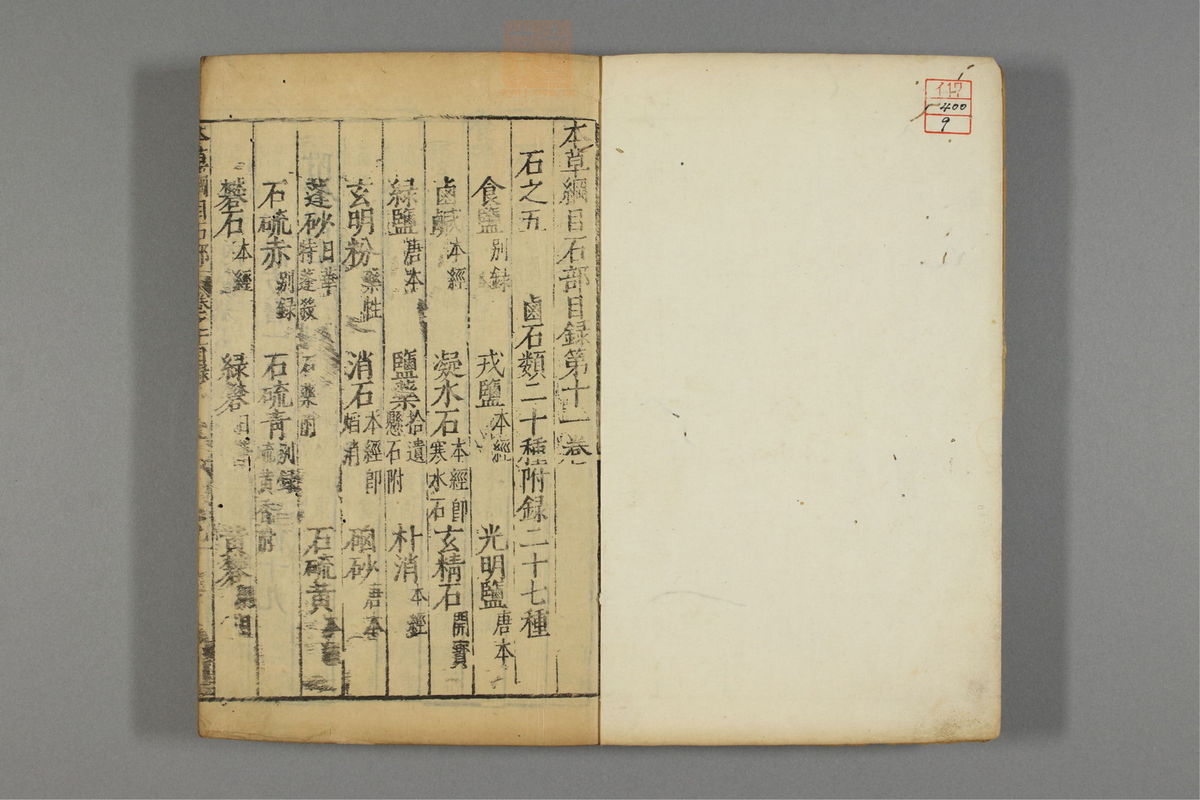 117
400
9
本草綱目石部目録第十一卷
石之五 鹵石類二十種附録二十七種
食鹽別錄 戎鹽本經 光明鹽唐本
鹵鹹本經 凝水石本經即寒水石 玄精石開寶
緑鹽唐本 鹽藥拾遺懸石附 朴消本經
玄明粉藥性 消石本經即焰消 硇砂唐本
蓬砂日華特蓬殺石藥附 石硫黃本
石硫赤別録 石硫青別録硫黃香附
礬石本經 緑礬日華 黃礬
本草綱目石部